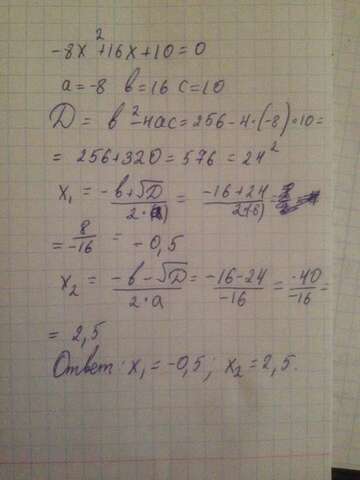 -8x²+16x+10=0
a=-8 в=16 c=10
D = в²-4ac=256-4·(-8)·10=
= 256+320=576=24²
x₁ = (-в+√D)/(2·a) = (-16+24)/(2·(-8)) =
= 8/-16 = -0,5
x₂ = (-в-√D)/(2·a) = (-16-24)/-16 = -40/-16 =
= 2,5
Ответ: x₁=-0,5; x₂=2,5.